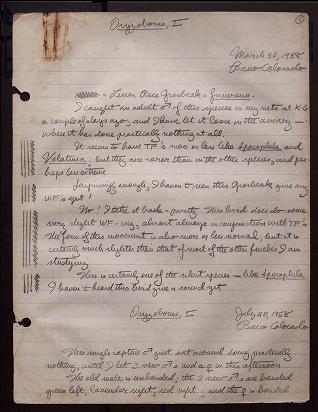 Oryzoborus, I
①
March 30, 1958
Barro Colorado
= Lesser Rice Grosbeak = funereus.
I caught an adult ♂ of this species in my nets at K-6
a couple of days ago, and I have let it loose in the aviary —
where it has done practically nothing at all.
It seems to have TF's more or less like Sporophila and
Volatinia, but they are rarer than in the other species, and per-
haps less extreme
Surprisingly enough, I haven't seen this Grosbeak give any
WF's yet!
No! I take it back - partly. This bird does do some
very slight WF-ing, almost always in conjunction with TF's.
The form of this movement is also more or less normal, but it is
certainly much slighter than that of most of the other finches I am
studying.
This is certainly one of the silent species — like Sporophila
I haven't heard this bird give a sound yet
Oryzoborus, I
July 20, 1958
Barro Colorado
This single captive ♂ just sat around doing practically
nothing, until I let 3 new ♂'s and a ♀ in this afternoon
The old male is unbanded; the 3 new ♂'s are banded
green left, lavender right, red right, and the ♀ is banded